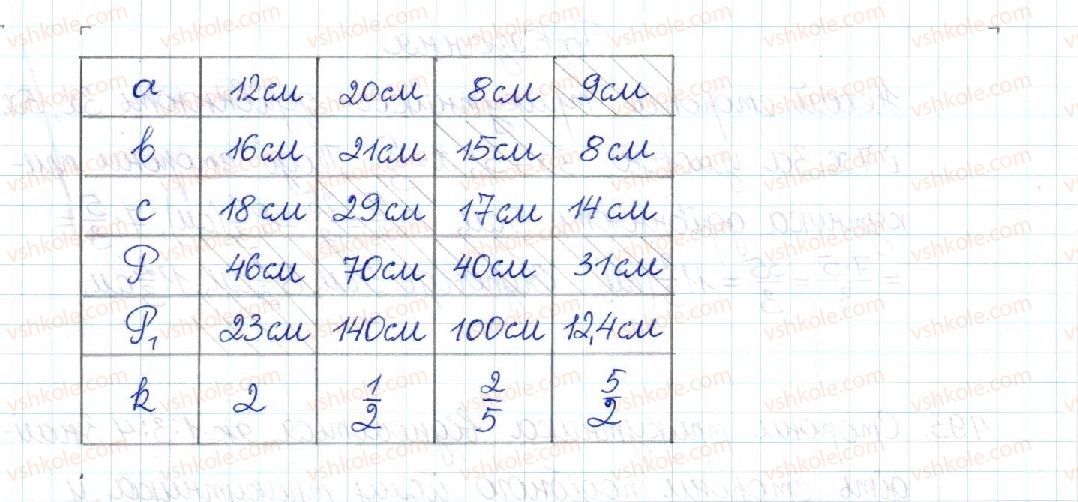 a 12см 20см 8см 9см
b 16см 21см 15см 8см
c 18см 29см 17см 14см
P 46см 70см 40см 31см
P₁ 23см 140см 100см 12,4см
k 2 1/2 2/5 5/2